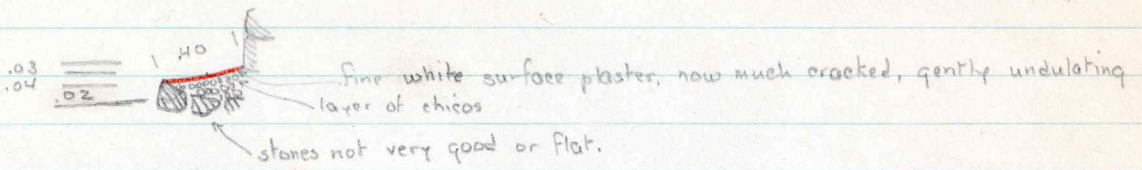 1 .40 1
.03
.04
.02
fine white surface plaster, now much cracked, gently undulating
layer of chicos
stones not very good or flat.